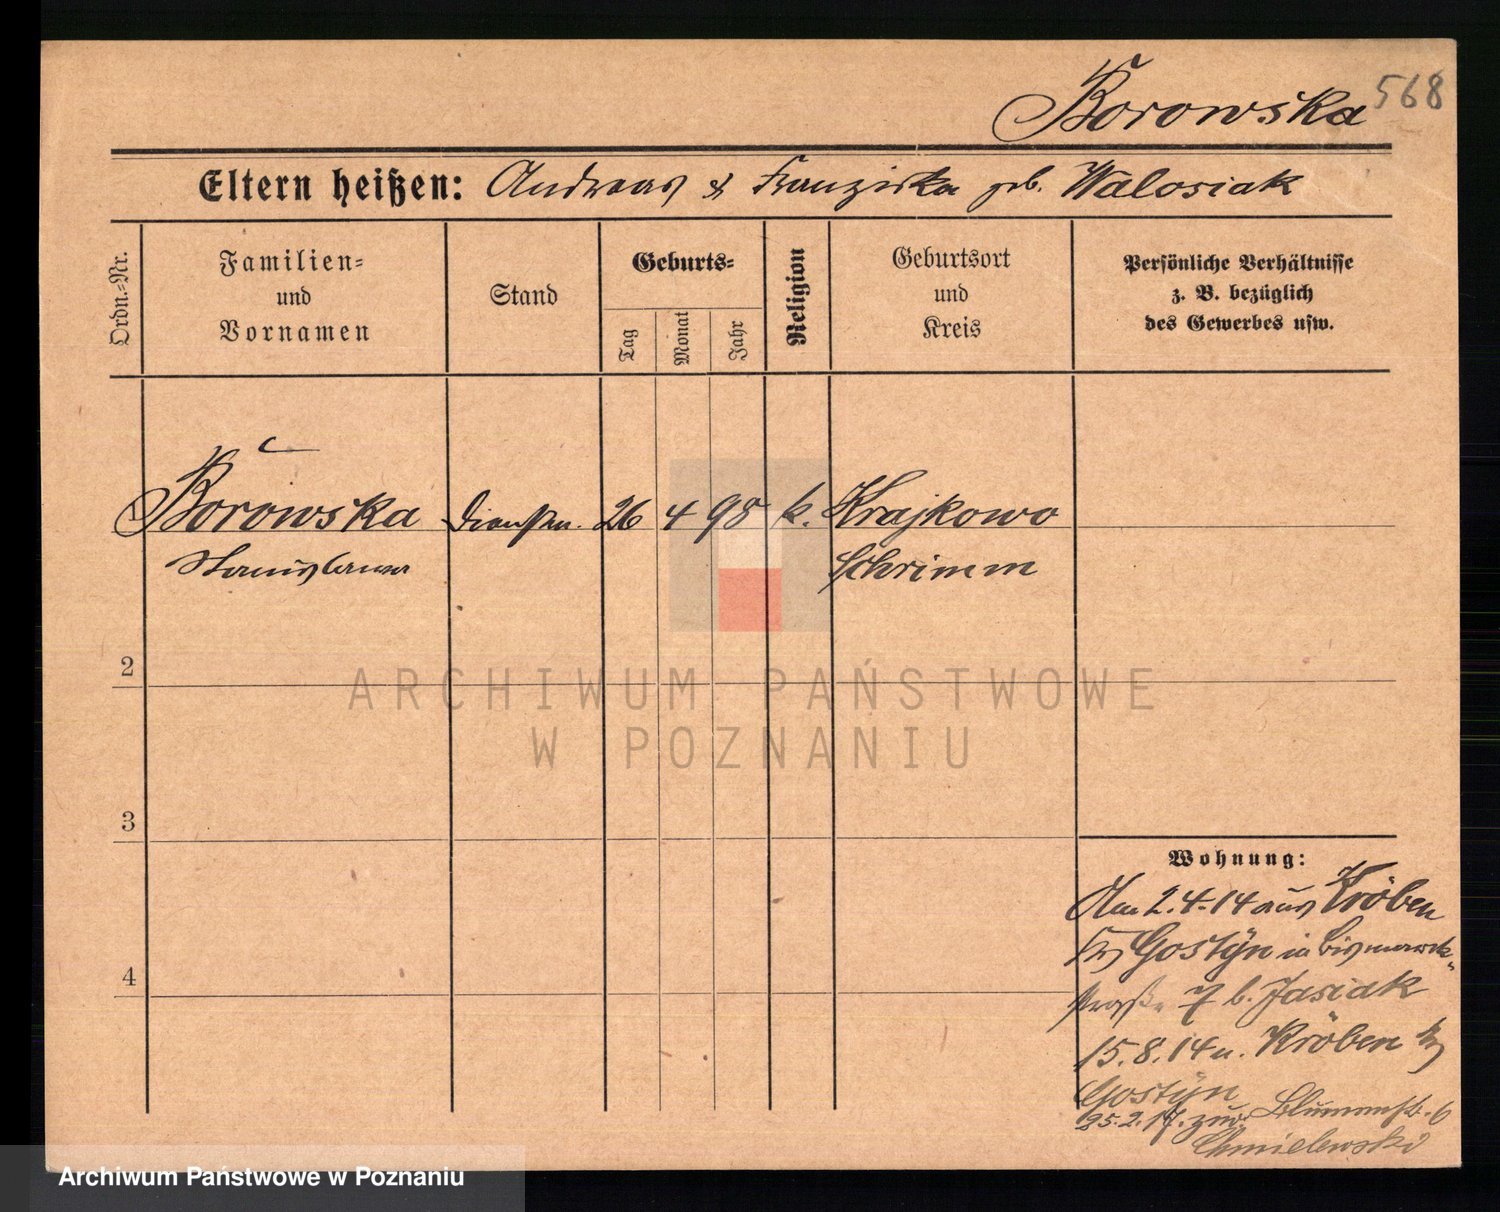 Borowska 568
Eltern heißen: Andreas & Franziska geb. Walosiak
Ordn.-Nr.
Familien-
und
Vornamen
Stand
Geburts-
Tag
Monat
Jahr
Religion
Geburtsort
und
Kreis
Persönliche Verhältnisse
z. B. bezüglich
des Gewerbes usw.
1 Borowska Dienstm. 26 4 98 k. Krajkowo
Stanislawa Schrimm
2
ARCHIWUM PAŃSTWOWE
W POZNANIU
3
Wohnung:
Am 2.4.14 aus Kröben
Krs Gostÿn in Bismarck-
straße 7 b. Jasiak
4
15.8.14 n. Kröben Krs
Gostÿn
25.2.17. zur. Blumenstr. 6
Chmielewski
Archiwum Państwowe w Poznaniu